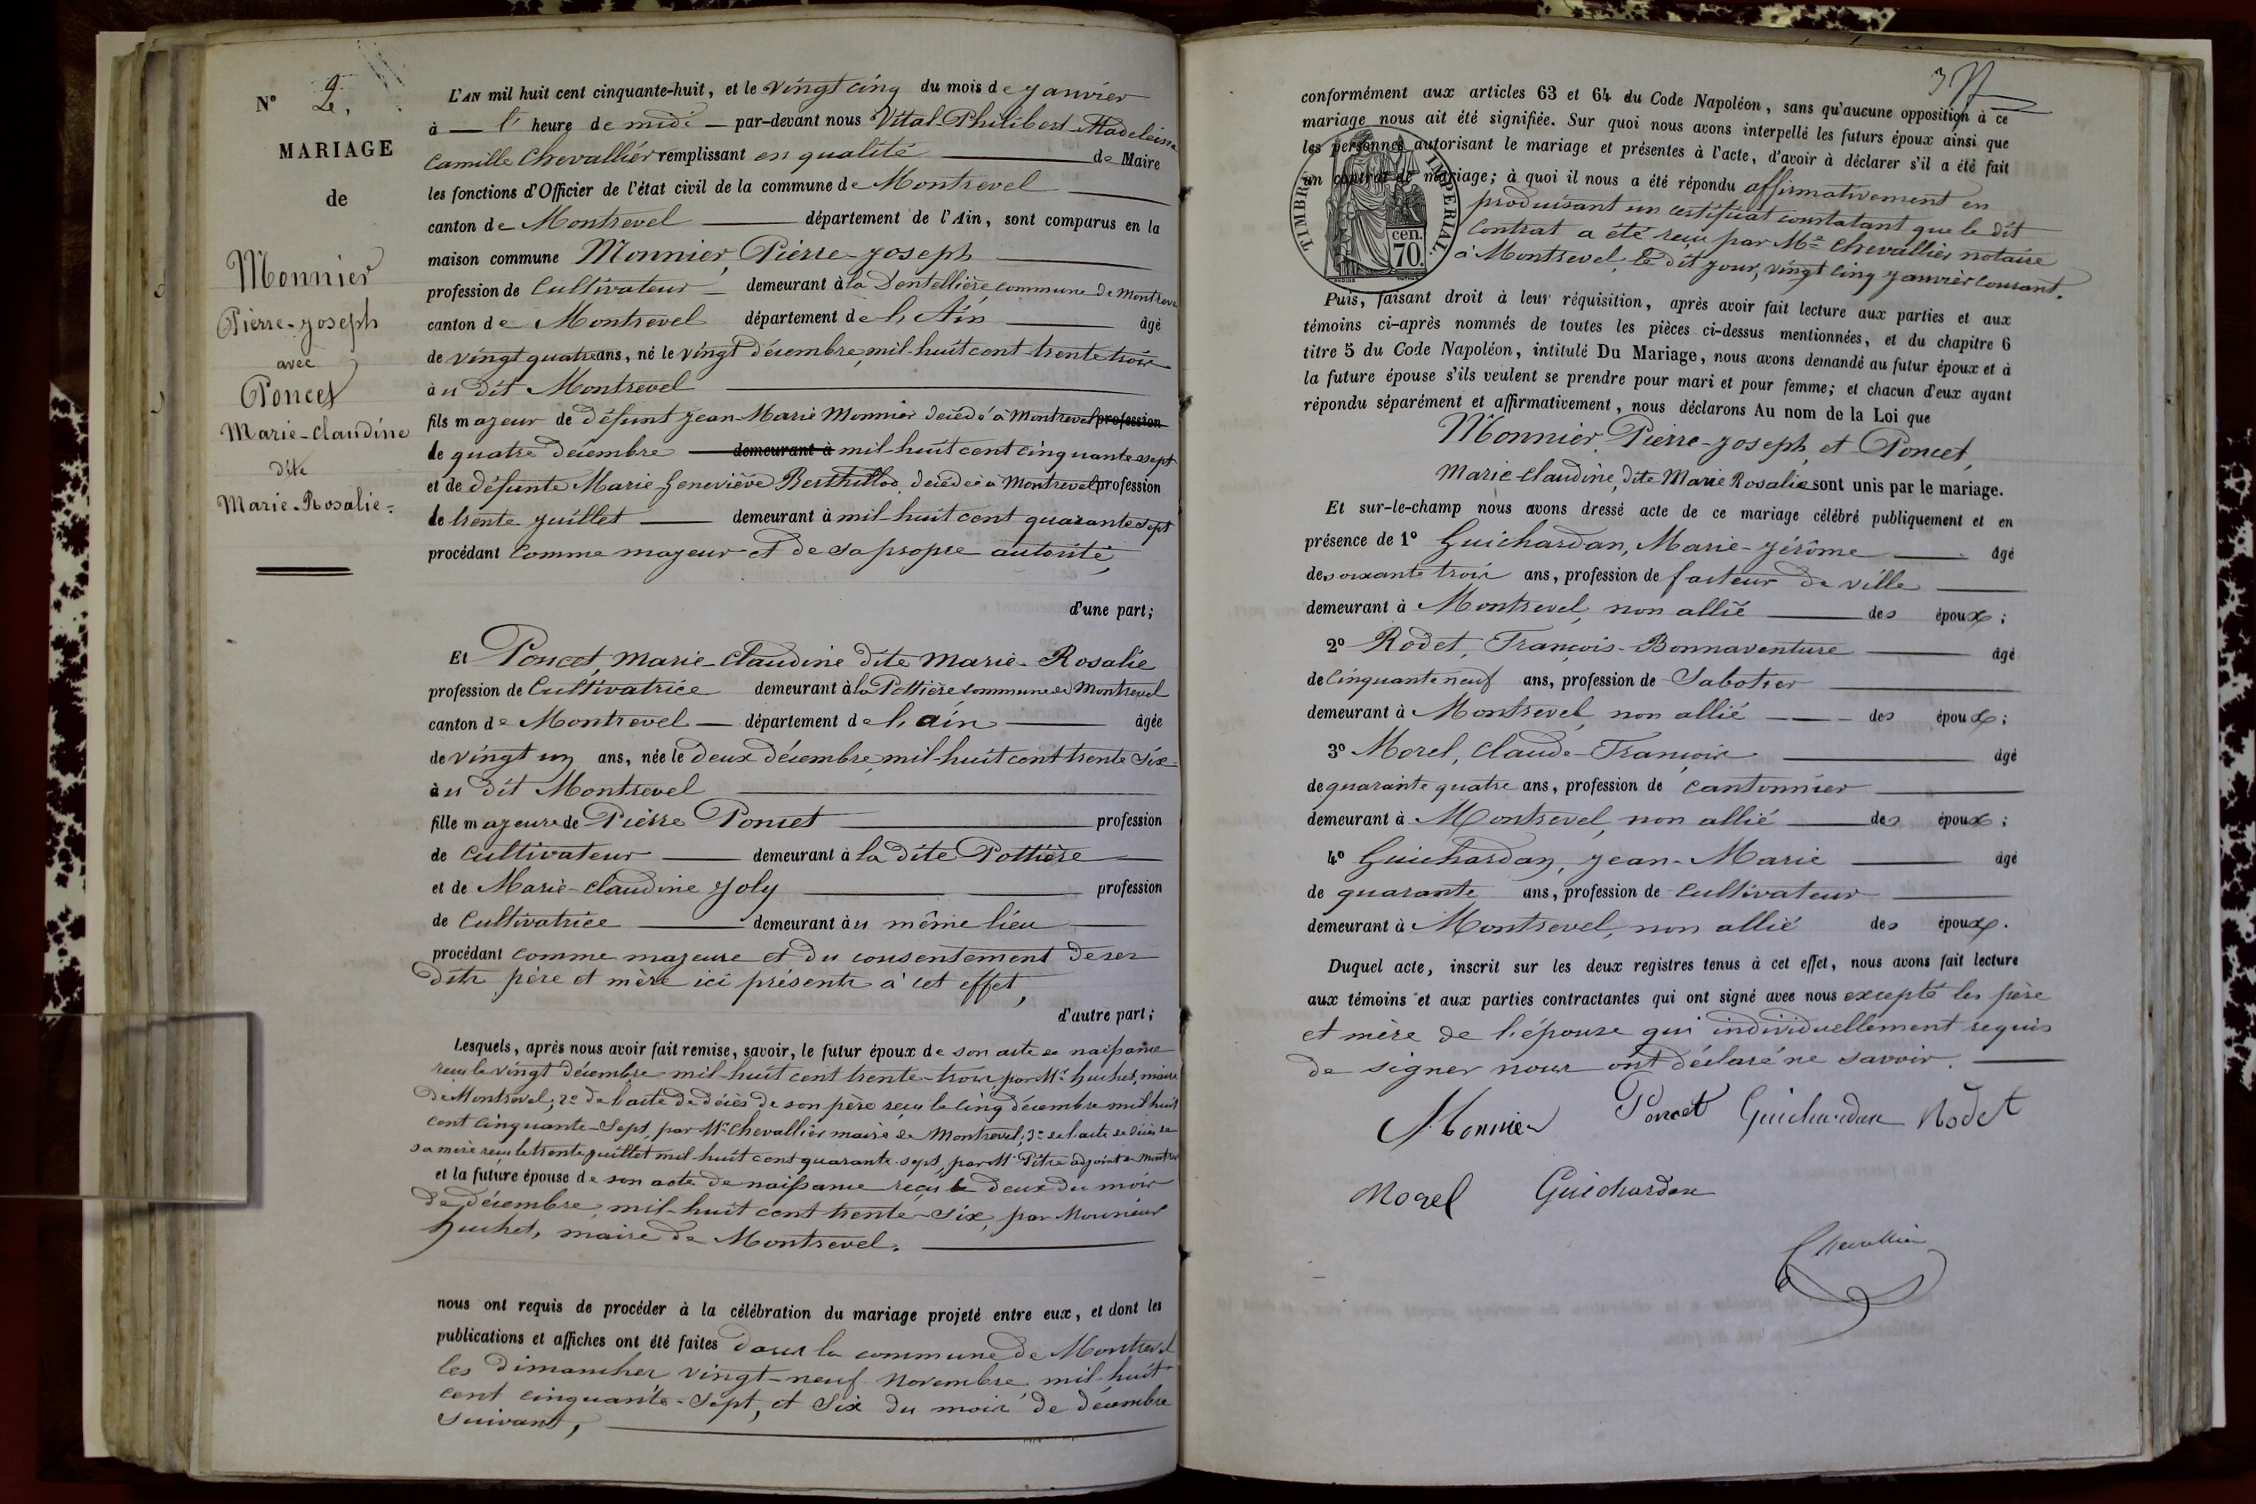 N° 2.
MARIAGE
de
Monnier
Pierre-Joseph
avec
Poncet
Marie-Claudine
dite
Marie-Rosalie.
L'AN mil huit cent cinquante-huit, et le vingt cinq du mois de janvier
à l' heure de midi par-devant nous Vital Philibert Madeleine
Camille Chevallier remplissant en qualité de Maire
les fonctions d'Officier de l'état civil de la commune de Montrevel
canton de Montrevel département de l'Ain, sont comparus en la
maison commune Monnier, Pierre-Joseph
profession de Cultivateur demeurant à la Dentellière commune de Montrevel
canton de Montrevel département de l'Ain âgé
de vingt quatre ans, né le vingt décembre mil huit cent trente trois
à u dit Montrevel
fils majeur de défunt Jean-Marie Monnier décédé à Montrevel profession
de quatre décembre demeurant à mil huit cent cinquante sept
et de défunte Marie Geneviève Berthillod décédée à Montrevel profession
de trente juillet demeurant à mil huit cent quarante sept
procédant comme majeur et de sa propre autorité,
d'une part;
Et Poncet, Marie-Claudine dite Marie-Rosalie
profession de Cultivatrice demeurant à la Pottière commune de Montrevel
canton de Montrevel département de l'ain âgée
de vingt un ans, née le deux décembre mil huit cent trente six
à u dit Montrevel
fille majeure de Pierre Poncet profession
de Cultivateur demeurant à la dite Pottière
et de Marie-Claudine Joly profession
de Cultivatrice demeurant à u même lieu
procédant comme majeure et du consentement de ses
dits père et mère ici présents à cet effet,
d'autre part;
Lesquels, après nous avoir fait remise, savoir, le futur époux de son acte de naissance
reçu le vingt décembre mil huit cent trente-trois, par Mr Huchet, maire
de Montrevel; 2° de l'acte de décès de son père reçu le cinq décembre mil huit
cent cinquante-sept, par Mr Chevallier maire de Montrevel; 3° de l'acte de décès de
sa mère reçu le trente juillet mil huit cent quarante sept, par Mr Pitre adjoint de Montrevel
et la future épouse de son acte de naissance reçu le deux du mois
de décembre mil huit cent trente-six, par Monsieur
Huchet, maire de Montrevel.
nous ont requis de procéder à la célébration du mariage projeté entre eux, et dont les
publications et affiches ont été faites dans la commune de Montrevel
les dimanches vingt-neuf novembre mil huit
cent cinquante-sept, et six du mois de décembre
suivant,
conformément aux articles 63 et 64 du Code Napoléon, sans qu'aucune opposition à ce
mariage nous ait été signifiée. Sur quoi nous avons interpellé les futurs époux ainsi que
les personnes autorisant le mariage et présentes à l'acte, d'avoir à déclarer s'il a été fait
un contrat de mariage; à quoi il nous a été répondu affirmativement en
produisant un certificat constatant que le dit
Contrat a été reçu par Me Chevallier notaire
à Montrevel, le dit jour, vingt cinq janvier courant.
TIMBRE IMPÉRIAL.
cen.
70.
Puis, faisant droit à leur réquisition, après avoir fait lecture aux parties et aux
témoins ci-après nommés de toutes les pièces ci-dessus mentionnées, et du chapitre 6
titre 5 du Code Napoléon, intitulé Du Mariage, nous avons demandé au futur époux et à
la future épouse s'ils veulent se prendre pour mari et pour femme; et chacun d'eux ayant
répondu séparément et affirmativement, nous déclarons Au nom de la Loi que
Monnier, Pierre-Joseph, et Poncet,
Marie-Claudine, dite Marie Rosalie sont unis par le mariage.
Et sur-le-champ nous avons dressé acte de ce mariage célébré publiquement et en
présence de 1° Guichardan, Marie-Jérôme âgé
de soixante trois ans, profession de facteur de ville
demeurant à Montrevel, non allié des époux;
2° Rodet, François-Bonnaventure âgé
de cinquante neuf ans, profession de Sabotier
demeurant à Montrevel, non allié des époux;
3° Morel, Claude-François âgé
de quarante quatre ans, profession de Cantonnier
demeurant à Montrevel, non allié des époux;
4° Guichardan, Jean-Marie âgé
de quarante ans, profession de Cultivateur
demeurant à Montrevel, non allié des époux.
Duquel acte, inscrit sur les deux registres tenus à cet effet, nous avons fait lecture
aux témoins et aux parties contractantes qui ont signé avec nous excepté les père
et mère de l'épouse qui individuellement requis
de signer nous ont déclaré ne savoir.
Monnier Poncet Guichardan Rodet
Morel Guichardan
Chevallier